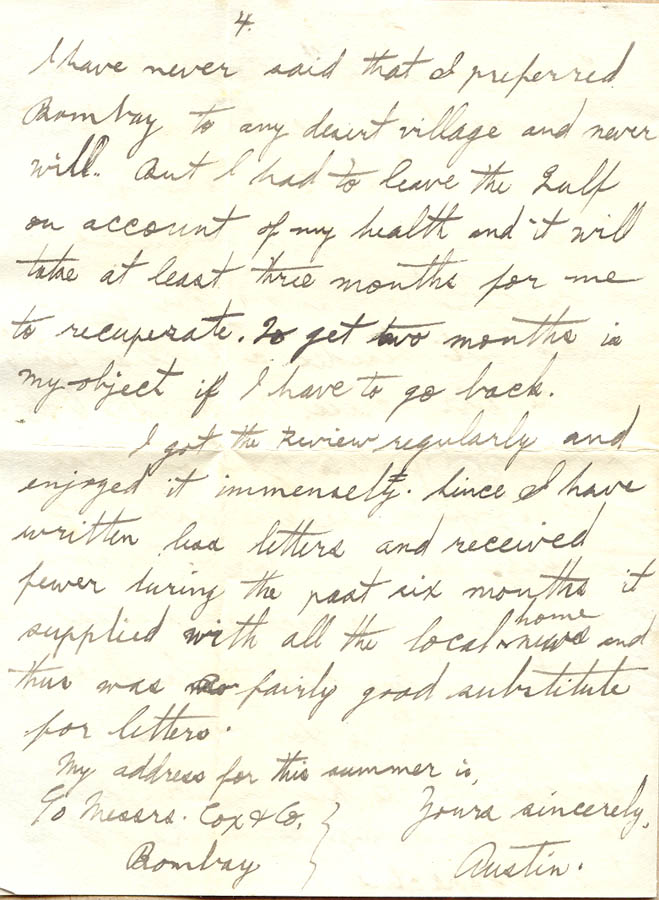 4.
I have never said that I preferred
Bombay to any desert village and never
will. But I had to leave the Gulf
on account of my health and it will
take at least three months for me
to recuperate. To get two months is
my object if I have to go back.
I got the Review regularly and
enjoyed it immensely. Since I have
written less letters and received
fewer during the past six months it
supplied with all the local home news and
thus was fairly good substitute
for letters.
My address for this summer is,
Messrs. Cox & Co.
Bombay
Yours sincerely,
Austin.